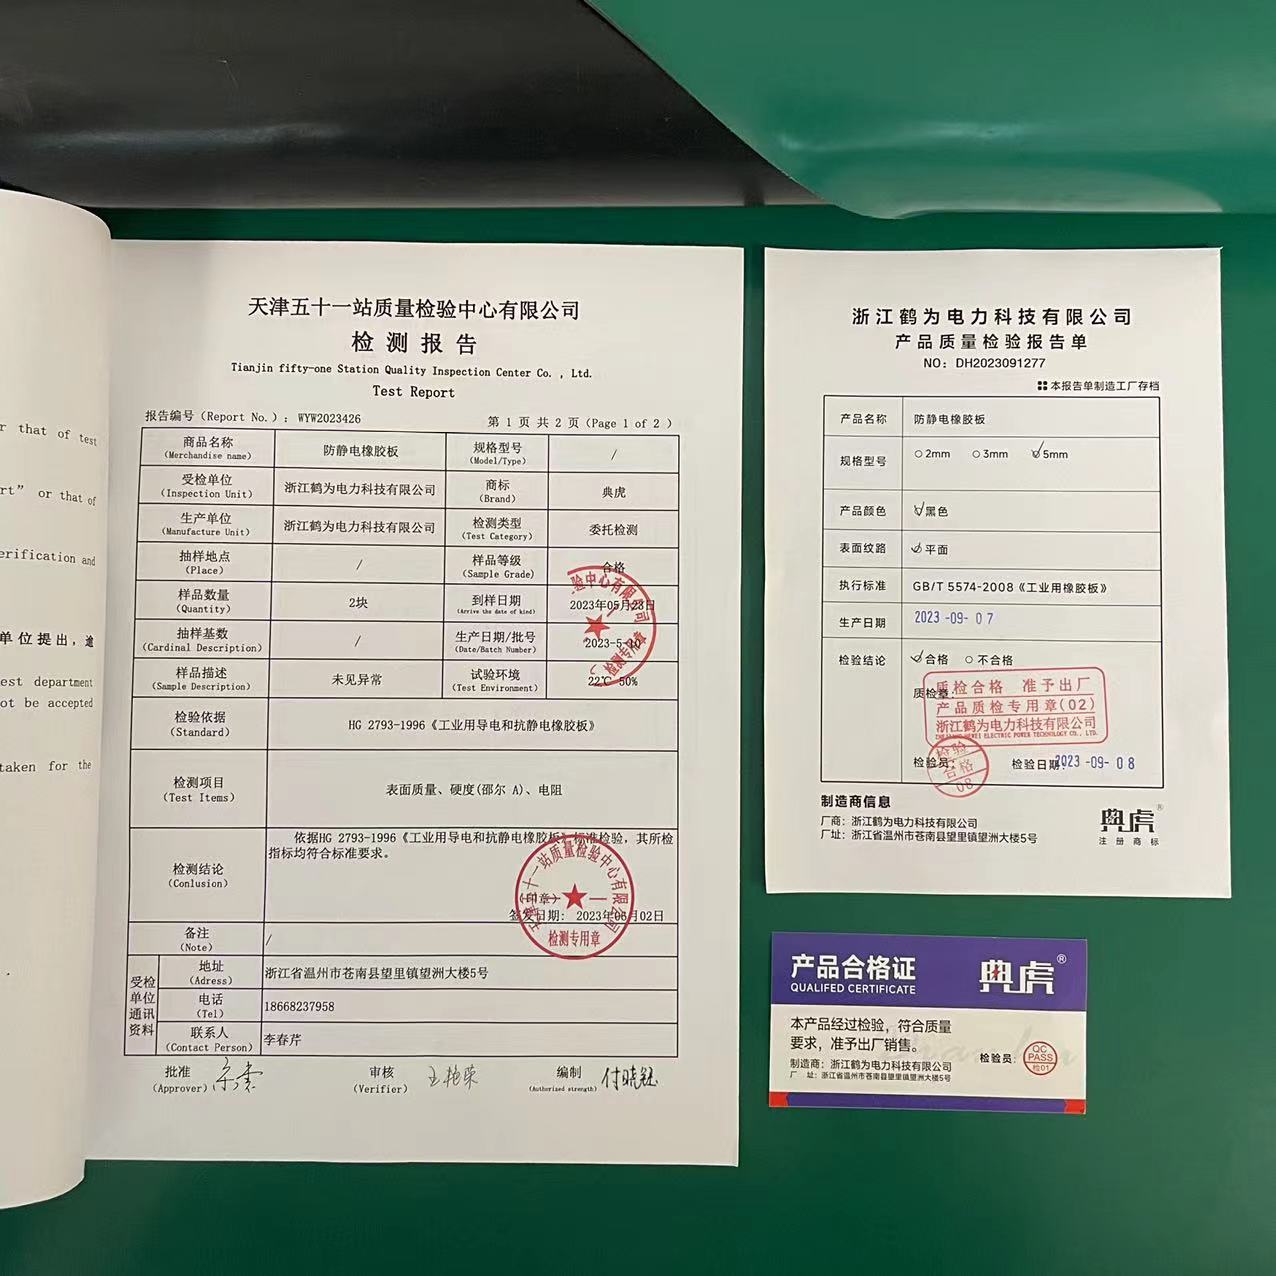 r that of test
rt” or that of
erification and
单位提出，逾
est department
ot be accepted
taken for the
天津五十一站质量检验中心有限公司
检测报告
Tianjin fifty-one Station Quality Inspection Center Co. , Ltd.
Test Report
报告编号（Report No.）：WYW2023426
第 1 页 共 2 页（Page 1 of 2 ）
商品名称 防静电橡胶板 规格型号 /
(Merchandise name) (Model/Type)
受检单位 浙江鹤为电力科技有限公司 商标 典虎
(Inspection Unit) (Brand)
生产单位 浙江鹤为电力科技有限公司 检测类型 委托检测
(Manufacture Unit) (Test Category)
抽样地点 / 样品等级 合格
(Place) (Sample Grade)
样品数量 2块 到样日期 2023年05月23日
(Quantity) (Arrive the date of kind)
抽样基数 / 生产日期/批号 2023-5-10
(Cardinal Description) (Date/Batch Number)
样品描述 未见异常 试验环境 22℃ 50%
(Sample Description) (Test Environment)
检验依据 HG 2793-1996《工业用导电和抗静电橡胶板》
(Standard)
检测项目 表面质量、硬度(邵尔 A)、电阻
(Test Items)
检测结论 依据HG 2793-1996《工业用导电和抗静电橡胶板》标准检验，其所检
(Conlusion) 指标均符合标准要求。
（印章）
签发日期: 2023年06月02日
检测专用章
备注 /
(Note)
受检单位通讯资料
地址 浙江省温州市苍南县望里镇望洲大楼5号
(Adress)
电话 18668237958
(Tel)
联系人 李春芹
(Contact Person)
批准 审核 王艳荣 编制 付晓钰
(Approver) (Verifier) (Authorized strength)
浙江鹤为电力科技有限公司
产品质量检验报告单
NO: DH2023091277
本报告单制造工厂存档
产品名称 防静电橡胶板
规格型号 2mm 3mm 5mm
产品颜色 黑色
表面纹路 平面
执行标准 GB/T 5574-2008《工业用橡胶板》
生产日期 2023-09-07
检验结论 合格 不合格
质检章:
质检合格 准予出厂
产品质检专用章(02)
浙江鹤为电力科技有限公司
ZHEJIANG HEWEI ELECTRIC POWER TECHNOLOGY CO., LTD.
检验员: 检验日期: 2023-09-08
检验
合格
08
制造商信息
厂商: 浙江鹤为电力科技有限公司
厂址: 浙江省温州市苍南县望里镇望洲大楼5号
典虎®
注册商标
产品合格证
QUALIFED CERTIFICATE
典虎®
本产品经过检验，符合质量
要求，准予出厂销售。
制造商: 浙江鹤为电力科技有限公司
厂 址: 浙江省温州市苍南县望里镇望洲大楼5号
检验员:
QC
PASS
检01